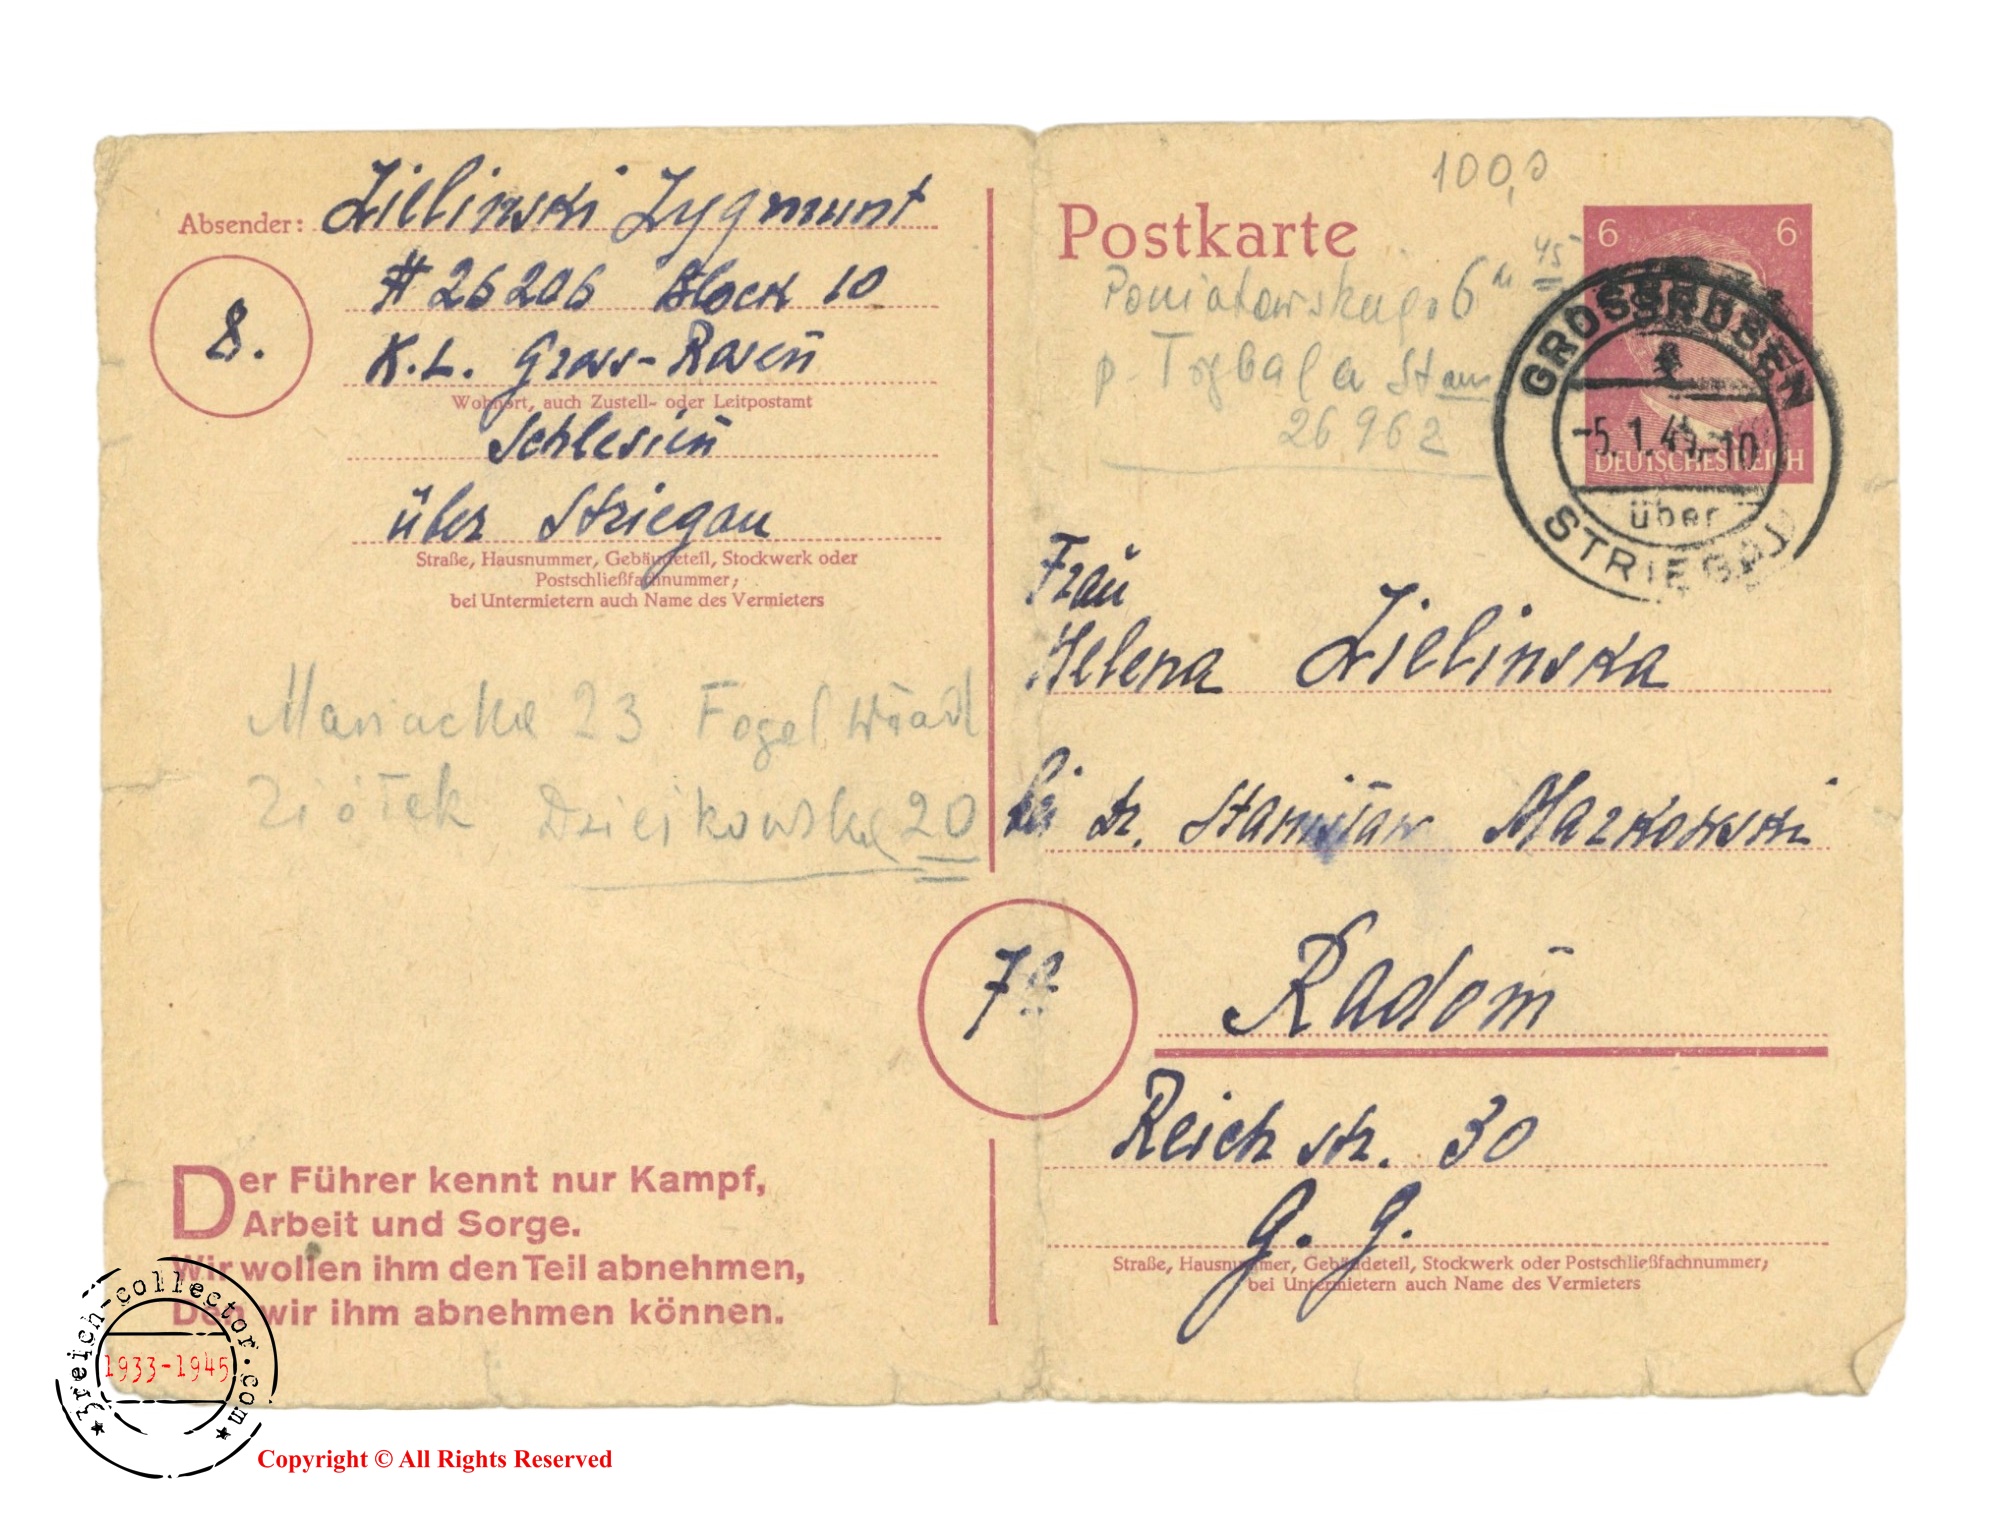 Absender: Zielinski Zygmunt
# 26206 Block 10
8.
K.L. Gross-Rosen
Wohnort, auch Zustell- oder Leitpostamt
Schlesien
über Striegau
Straße, Hausnummer, Gebäudeteil, Stockwerk oder
Postschließfachnummer;
bei Untermietern auch Name des Vermieters
Mariacka 23 Fogel
Ziółek 20
Der Führer kennt nur Kampf,
Arbeit und Sorge.
Wir wollen ihm den Teil abnehmen,
Den wir ihm abnehmen können.
100,0
Postkarte
6 6
DEUTSCHES REICH
GROSSROSEN
-5.1.45.-10
über
STRIEGAU
45
6
p.
26962
Frau
Helena Zielinska
bei Dr. Stanisław Markowski
7a
Radom
Reich str. 30
G. G.
Straße, Hausnummer, Gebäudeteil, Stockwerk oder Postschließfachnummer;
bei Untermietern auch Name des Vermieters
3reich-collector.com
1933-1945
Copyright © All Rights Reserved